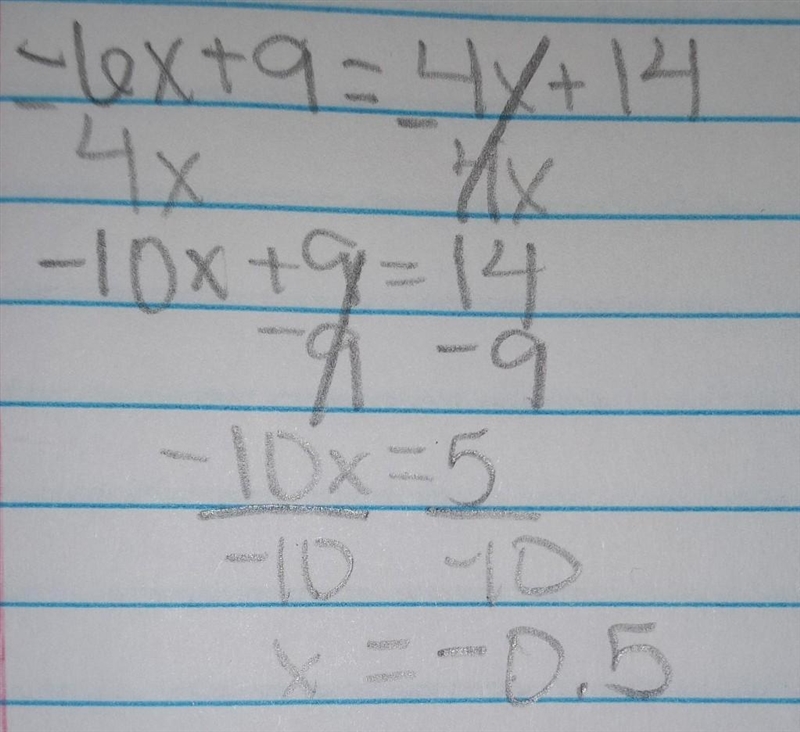 -6x+9=4x+14
-4x -4x
-10x+9=14
-9 -9
-10x=5
-10 -10
x=-0.5